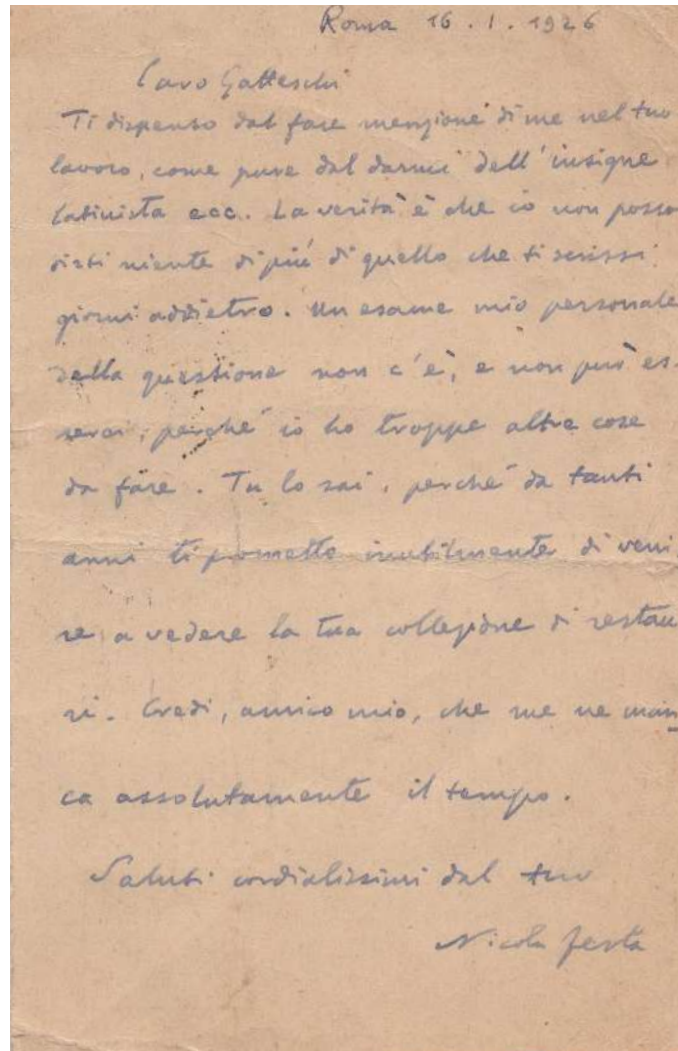 Roma 16.1.1926
Caro Gatteschi
Ti dispenso dal fare menzione di me nel tuo
lavoro, come pure dal darmi dell'insigne
latinista ecc. La verità è che io non posso
dirti niente di più di quello che ti scrissi
giorni addietro. Un esame mio personale
della questione non c'è, e non può es-
serci, perché io ho troppe altre cose
da fare. Tu lo sai, perché da tanti
anni ti prometto inutilmente di veni
re a vedere la tua collezione di restau
ri. Credi, amico mio, che me ne man
ca assolutamente il tempo.
Saluti cordialissimi dal tuo
Nicola Festa